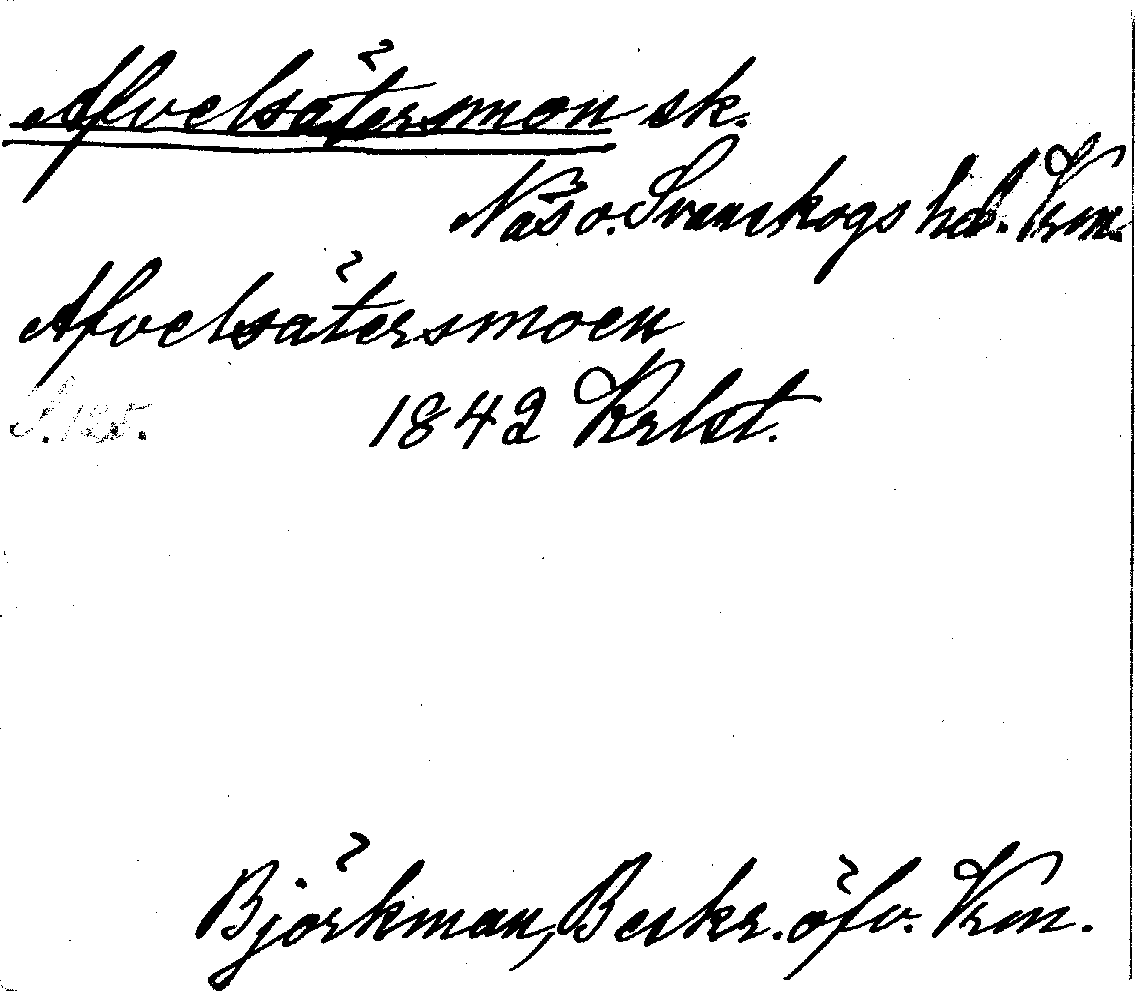 Afvelsätersmon sk.
Näs o. Svanskogs hd. Vrm.
Afvelsätersmoen
S. 125. 1842 Krlst.
Björkman, Beskr. öfv. Vrm.